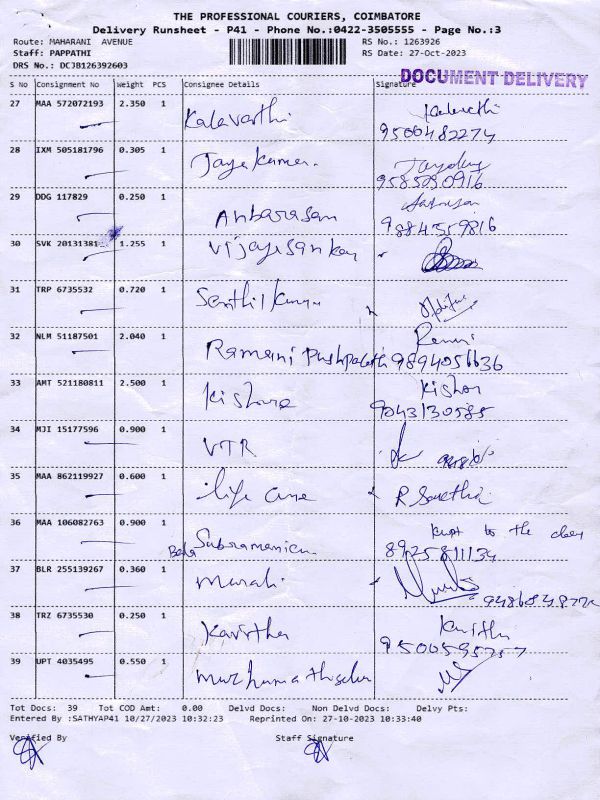 THE PROFESSIONAL COURIERS, COIMBATORE
Delivery Runsheet - P41 - Phone No.:0422-3505555 - Page No.:3
Route: MAHARANI AVENUE RS No.: 1263926
Staff: PAPPATHI RS Date: 27-Oct-2023
DRS No.: DCJB126392603
DOCUMENT DELIVERY
S No Consignment No Weight PCS Consignee Details Signature
27 MAA 572072193 2.350 1 Kalavarthi
9500482274
28 IXM 505181796 0.305 1 Jayakumar
9585050916
29 DDG 117829 0.250 1 Anbarasan
9884559816
30 SVK 20131381 1.255 1 Vijayesankar
31 TRP 6735532 0.720 1 Senthilkumar
32 NLM 51187501 2.040 1 Ramani Pushpalath 9894056636
33 AMT 521180811 2.500 1 Kishore Kishor
9043130585
34 MJI 15177596 0.900 1 VTR
35 MAA 862119927 0.600 1 life care R
36 MAA 106082763 0.900 1 Bala Subramaniam Kept to the
8925811134
37 BLR 255139267 0.360 1 Murali
38 TRZ 6735530 0.250 1 Kavitha
39 UPT 4035495 0.550 1
Tot Docs: 39 Tot COD Amt: 0.00 Delvd Docs: Non Delvd Docs: Delvy Pts:
Entered By :SATHYAP41 10/27/2023 10:32:23 Reprinted On : 27-10-2023 10:33:40
Verified By Staff Signature